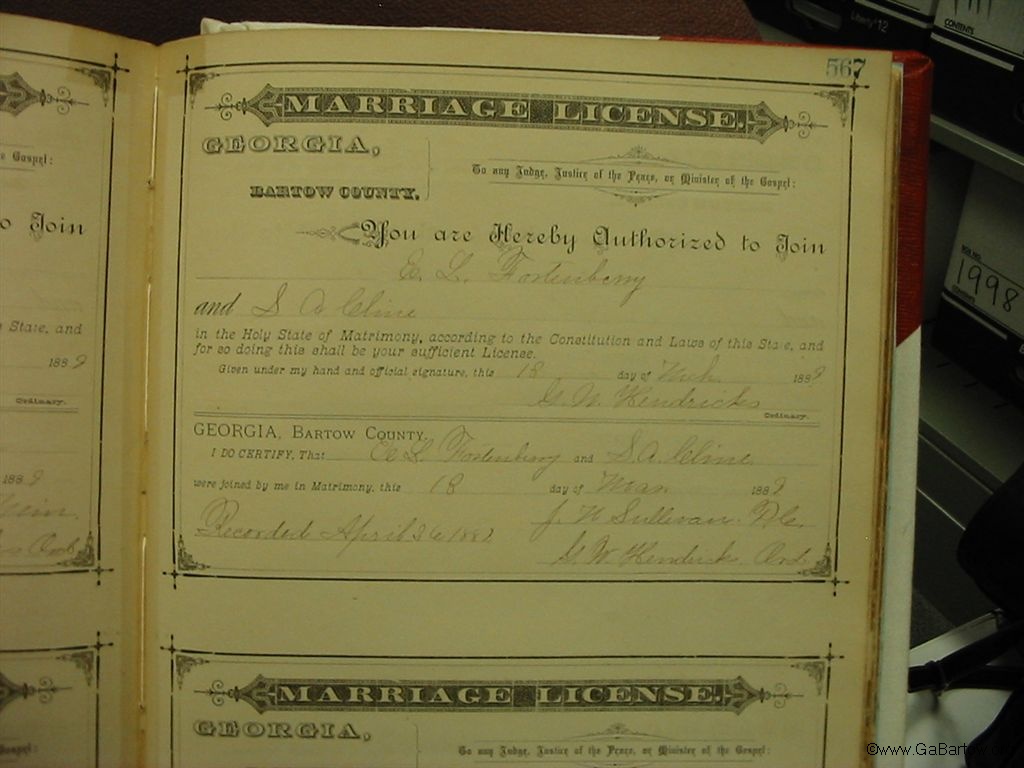 567
Liberty® 12
CONTENTS
MARRIAGE LICENSE.
GEORGIA,
BARTOW COUNTY.
To any Judge, Justice of the Peace, or Minister of the Gospel:
You are Hereby Authorized to Join
E. L. Fortenberry
and S A Cline
in the Holy State of Matrimony, according to the Constitution and Laws of this State, and
for so doing this shall be your sufficient License.
Given under my hand and official signature, this 18 day of Mch 188
G. W. Hendricks
Ordinary.
GEORGIA, BARTOW COUNTY.
I DO CERTIFY, That E L Fortenberry and S. A. Cline
were joined by me in Matrimony, this 18 day of Mar 188
J H Sullivan
Recorded April 26 188
G. W. Hendricks Ord.
MARRIAGE LICENSE.
GEORGIA,
To any Judge, Justice of the Peace, or Minister of the Gospel:
e Gospel:
o Join
s State, and
188
Ordinary.
188
Ord
BOX NO.
1998
CONTENTS
©www.GaBartow